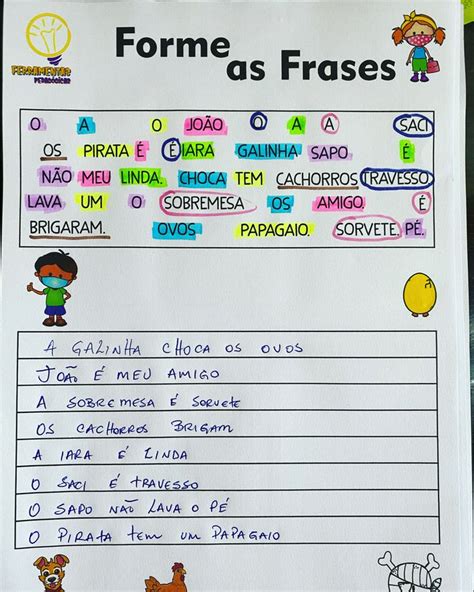 FERRAMENTAS
PEDAGÓGICAS
Forme
as Frases
O A O JOÃO O A A SACI
OS PIRATA É É IARA GALINHA SAPO É
NÃO MEU LINDA. CHOCA TEM CACHORROS TRAVESSO
LAVA UM O SOBREMESA OS AMIGO. É
BRIGARAM. OVOS PAPAGAIO. SORVETE. PÉ.
A GALINHA CHOCA OS OVOS
JOÃO É MEU AMIGO
A SOBREMESA É SORVETE
OS CACHORROS BRIGAM
A IARA É LINDA
O SACI É TRAVESSO
O SAPO NÃO LAVA O PÉ
O PIRATA tem um PAPAGAIO